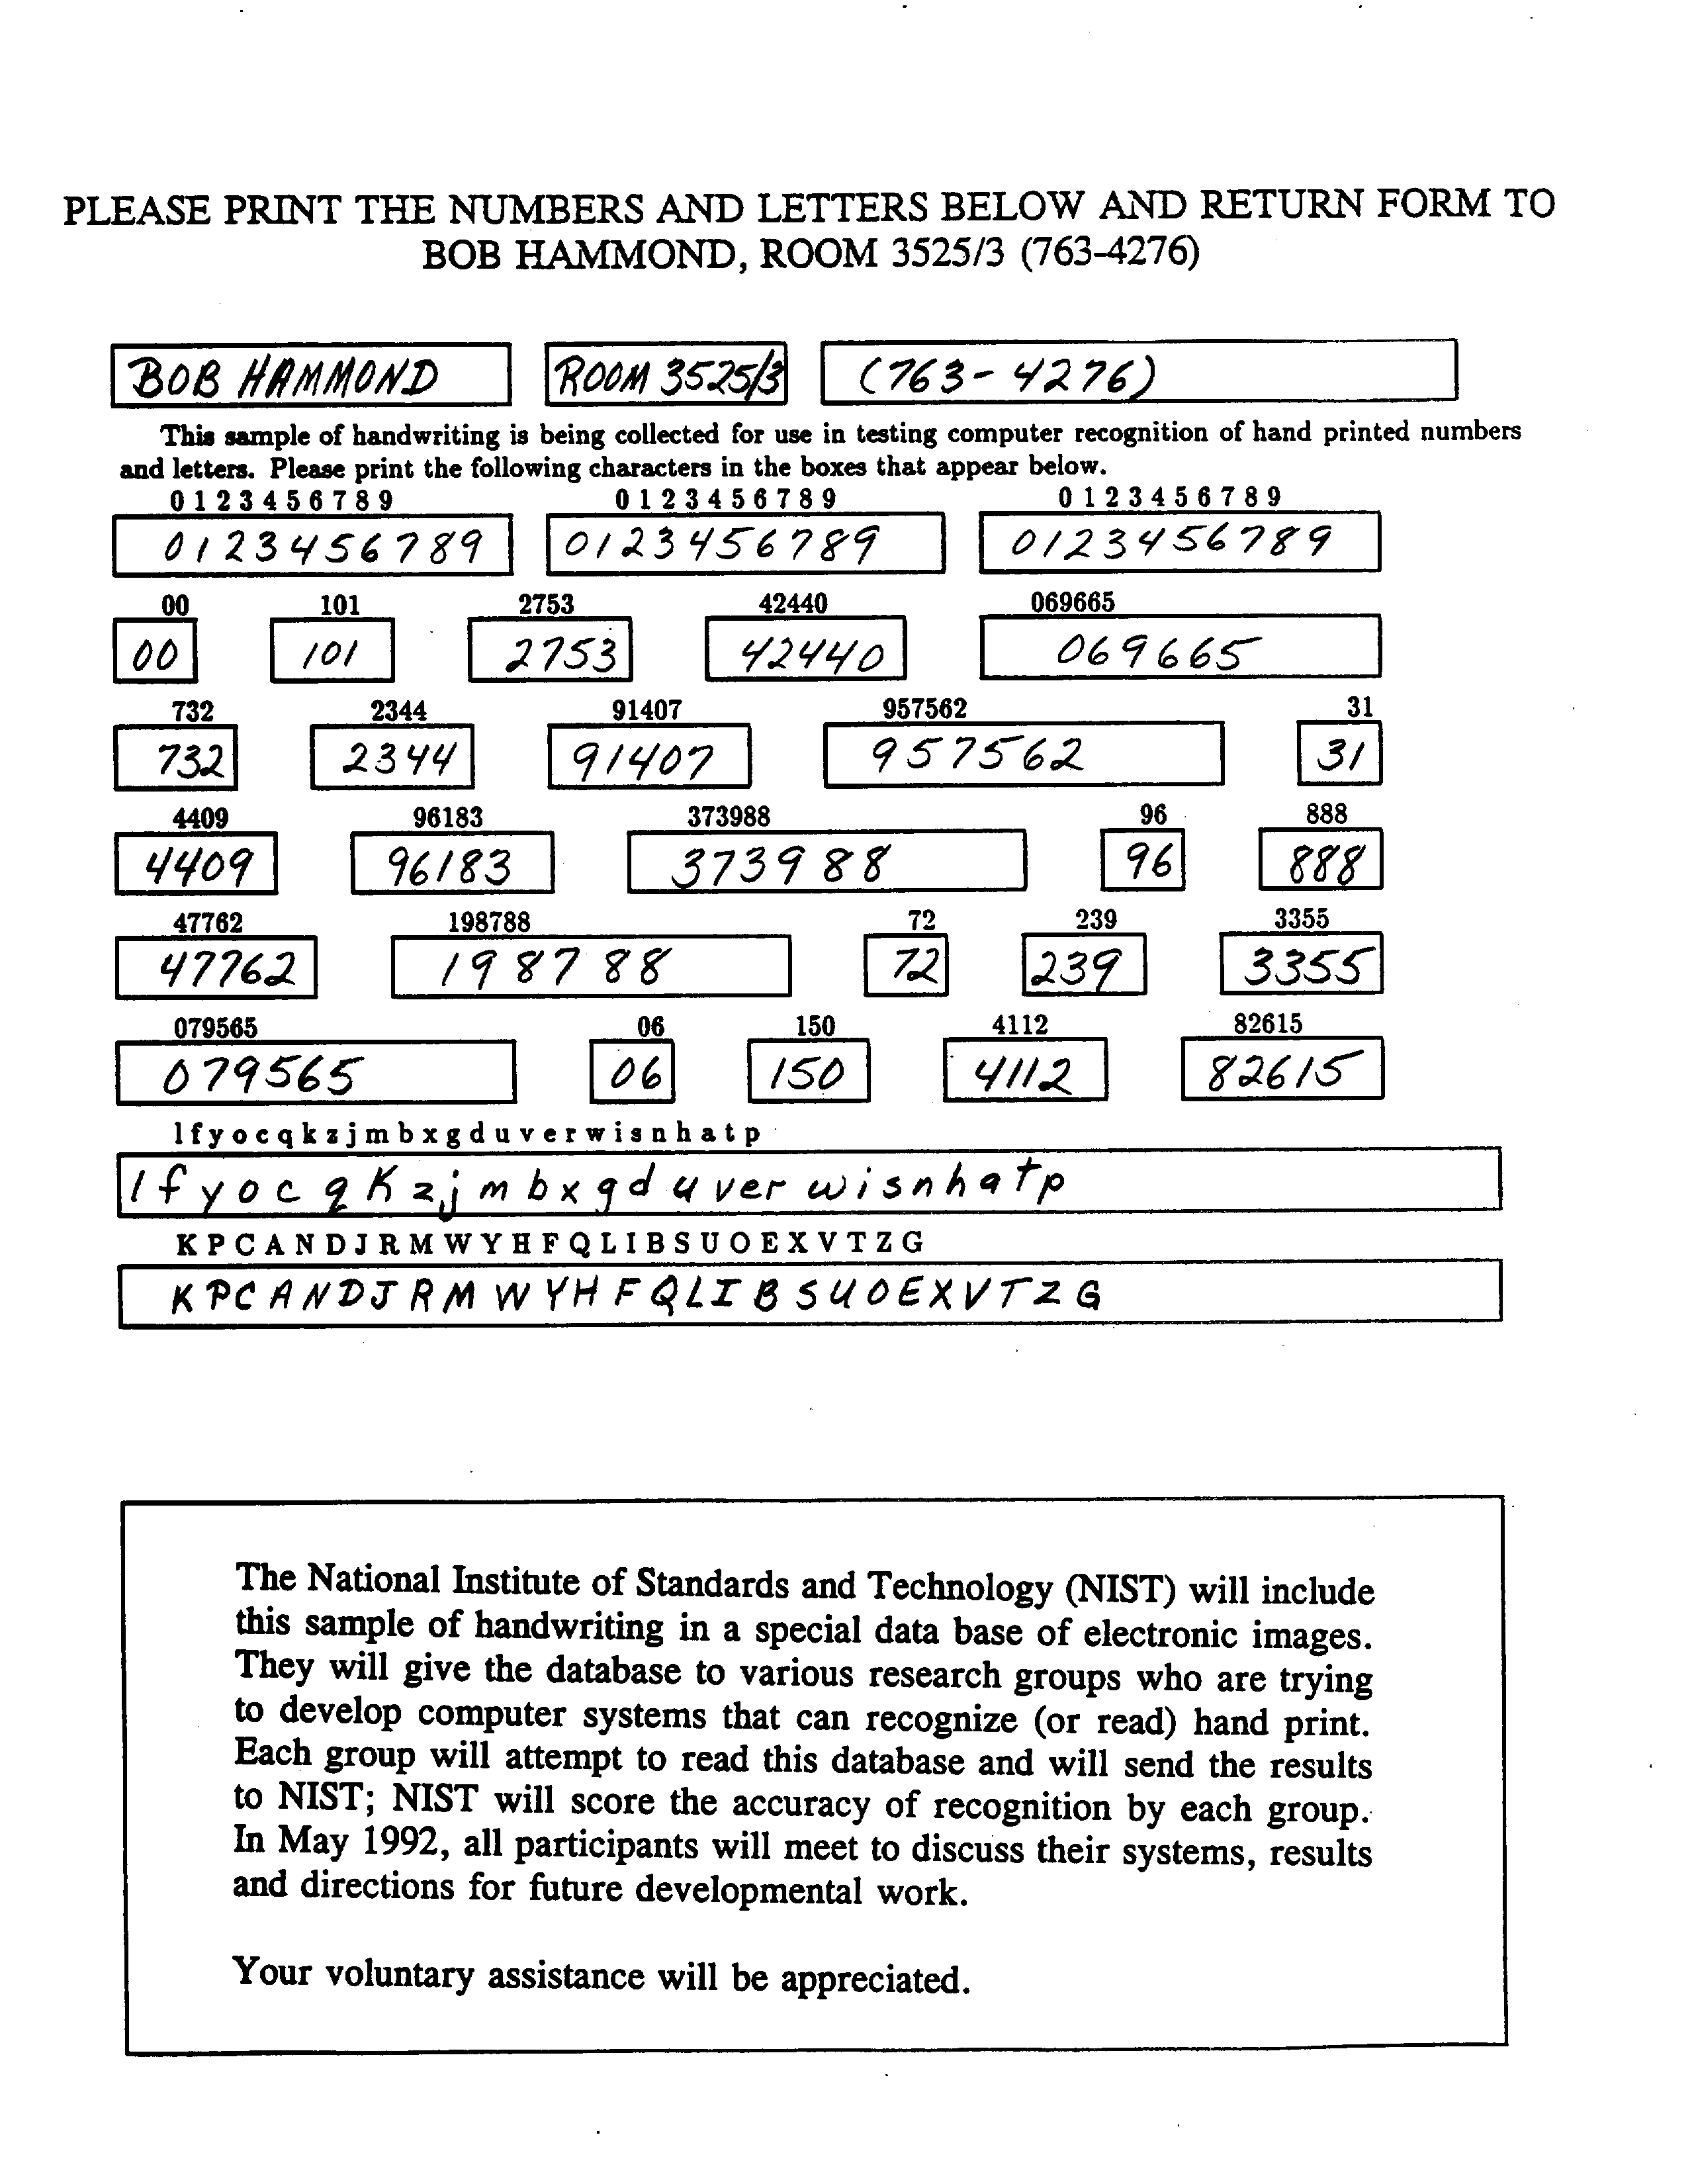 PLEASE PRINT THE NUMBERS AND LETTERS BELOW AND RETURN FORM TO
BOB HAMMOND, ROOM 3525/3 (763-4276)
BOB HAMMOND ROOM 3525/3 (763-4276)
This sample of handwriting is being collected for use in testing computer recognition of hand printed numbers
and letters. Please print the following characters in the boxes that appear below.
0 1 2 3 4 5 6 7 8 9 0 1 2 3 4 5 6 7 8 9 0 1 2 3 4 5 6 7 8 9
0123456789 0123456789 0123456789
00 101 2753 42440 069665
00 101 2753 42440 069665
732 2344 91407 957562 31
732 2344 91407 957562 31
4409 96183 373988 96 888
4409 96183 373988 96 888
47762 198788 72 239 3355
47762 198788 72 239 3355
079565 06 150 4112 82615
079565 06 150 4112 82615
l f y o c q k z j m b x g d u v e r w i s n h a t p
l f y o c q K z j m b x g d u v e r w i s n h a t p
K P C A N D J R M W Y H F Q L I B S U O E X V T Z G
K P C A N D J R M W Y H F Q L I B S U O E X V T Z G
The National Institute of Standards and Technology (NIST) will include
this sample of handwriting in a special data base of electronic images.
They will give the database to various research groups who are trying
to develop computer systems that can recognize (or read) hand print.
Each group will attempt to read this database and will send the results
to NIST; NIST will score the accuracy of recognition by each group.
In May 1992, all participants will meet to discuss their systems, results
and directions for future developmental work.
Your voluntary assistance will be appreciated.